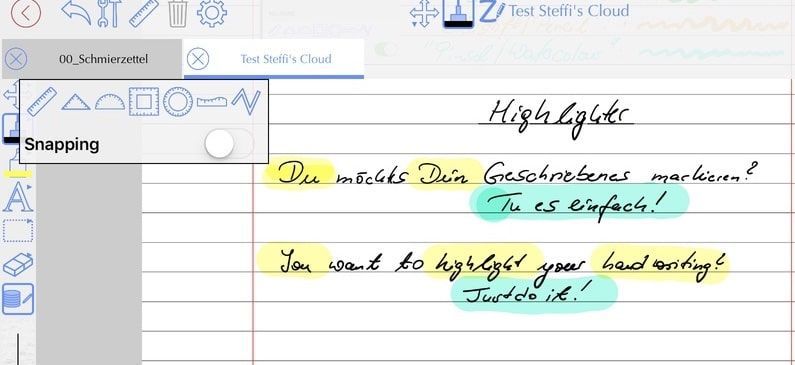 Test Steffi's Cloud
"Pinsel / Watercolour"
00_Schmierzettel
Test Steffi's Cloud
Snapping
Highlighter
Du möchtes Dein Geschriebenes markieren?
Tu es einfach!
You want to highlight your handwriting?
Just do it!